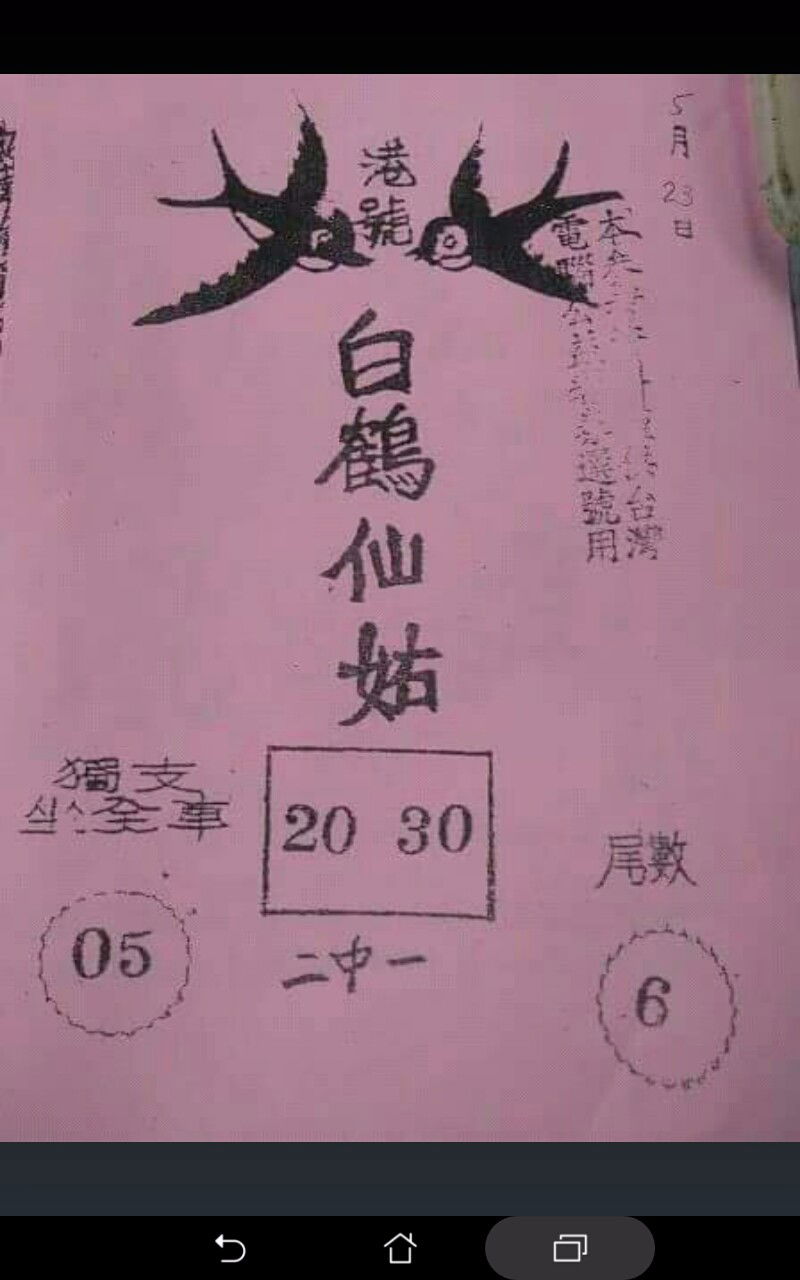 5月23日
港號
白鶴仙姑
台灣
電腦
選號用
獨支
全車
20 30
尾數
05
二中一
6